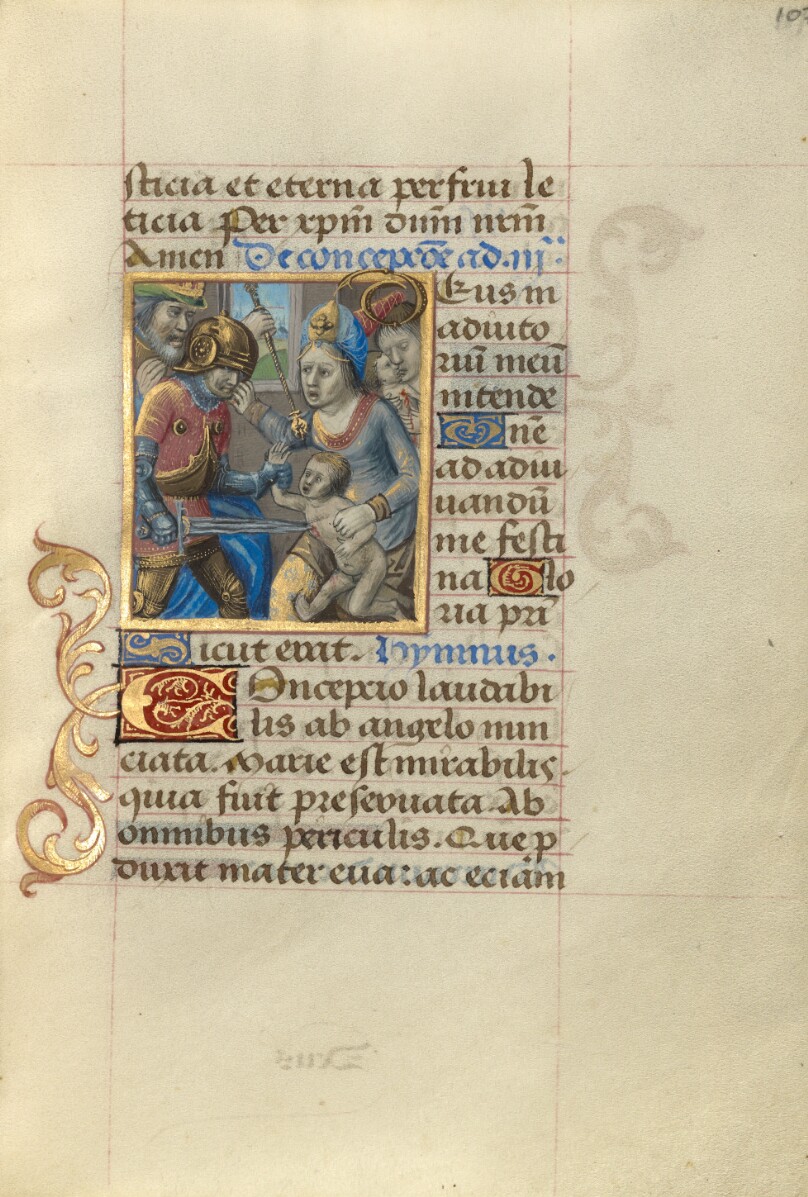 107
sticia et eterna perfrui le
ticia Per xpm̄ dūm nr̄m
Amen De concepc̄oe ad .iij.
Deus in
adiuto
riū meū
intende
Dnē
ad adiu
uandū
me festi
na Glo
ria pri
Sicut erat. hymnus.
Concepcio laudabi
lis ab angelo nun
ciata. Marie est mirabilis.
quia fuit preseruata. Ab
omnibus periculis. Que p
duxit mater eua: ac eciam